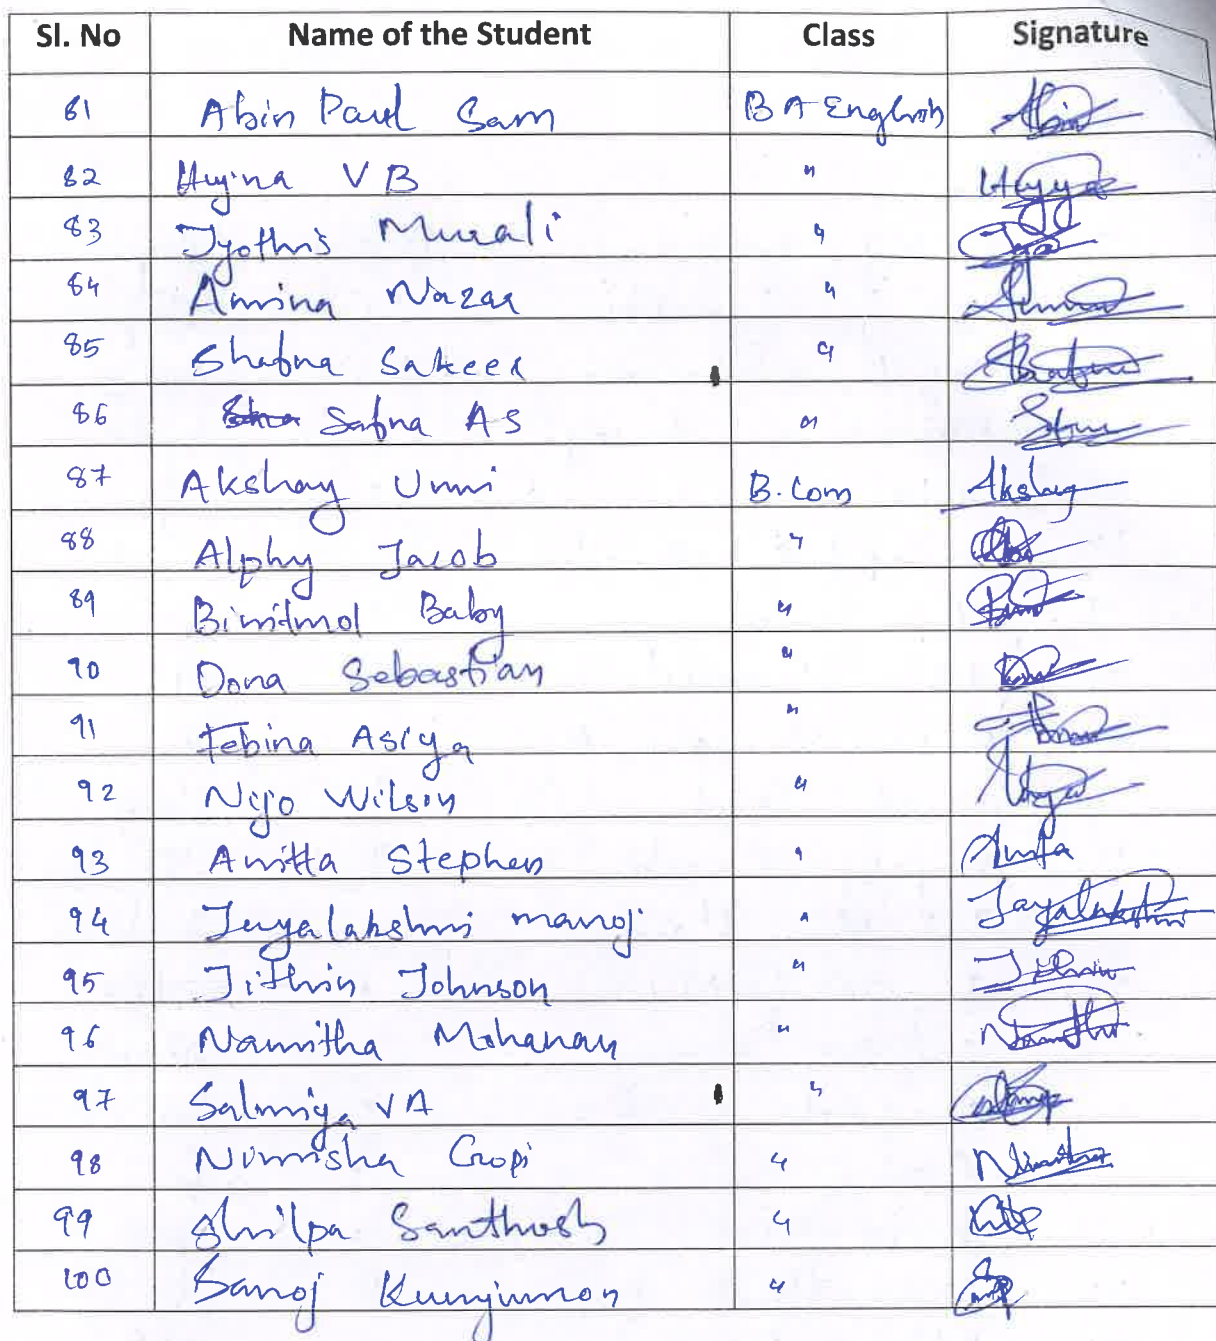 Sl. No Name of the Student Class Signature
81 Abin Paul Sam B A English Abin
82 Hujna V B "
83 Jyothis Murali "
84 Amina Nazar "
85 Shabna Sakeer "
86 Sabna A S "
87 Akshay Unni B.Com Akshay
88 Alphy Jacob "
89 Binitmol Baby "
90 Dona Sebastian "
91 Febina Asiya "
92 Nijo Wilson "
93 Anitta Stephen " Anita
94 Jayalakshmi manoj " Jayalakshmi
95 Jithin Johnson " Jithin
96 Namitha Mohanan "
97 Salmiya V A "
98 Nimisha Gopi " Nimisha
99 Shilpa Santhosh "
100 Sanoj Kunjumon "